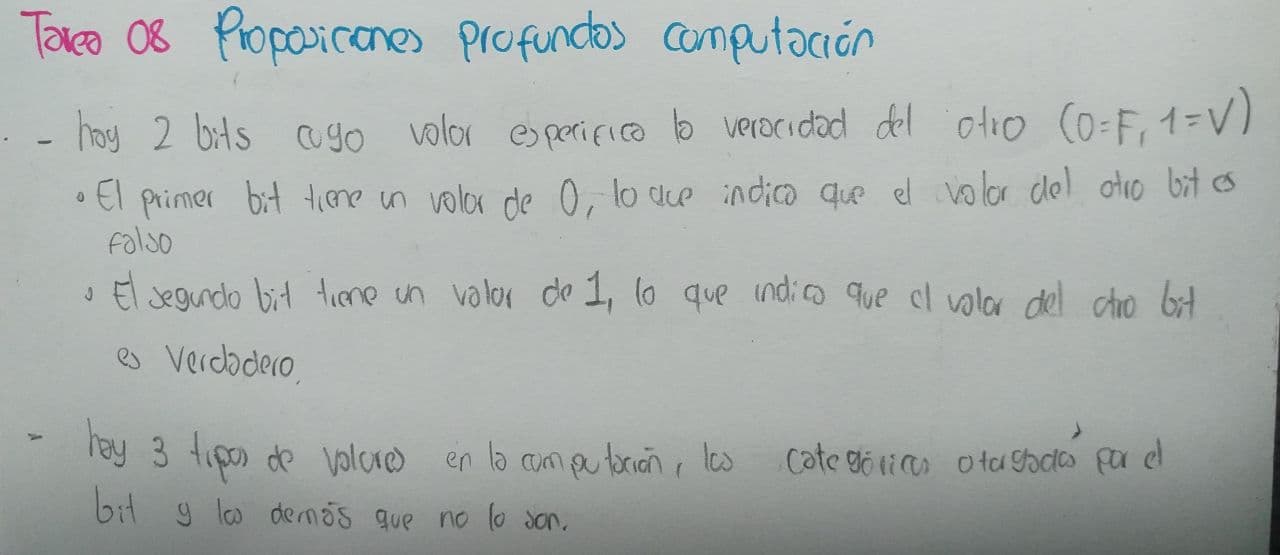 Tarea 08 Proposicones profundas computación
- hay 2 bits cuyo valor esperifica la veracidad del otro (0=F, 1=V)
• El primer bit tiene un valor de 0, lo que indica que el valor del otro bit es
falso
• El segundo bit tiene un valor de 1, lo que indica que el valor del otro bit
es Verdadero.
- hay 3 tipos de valores en la computación, los categóricos otorgados por el
bit y los demás que no lo son.